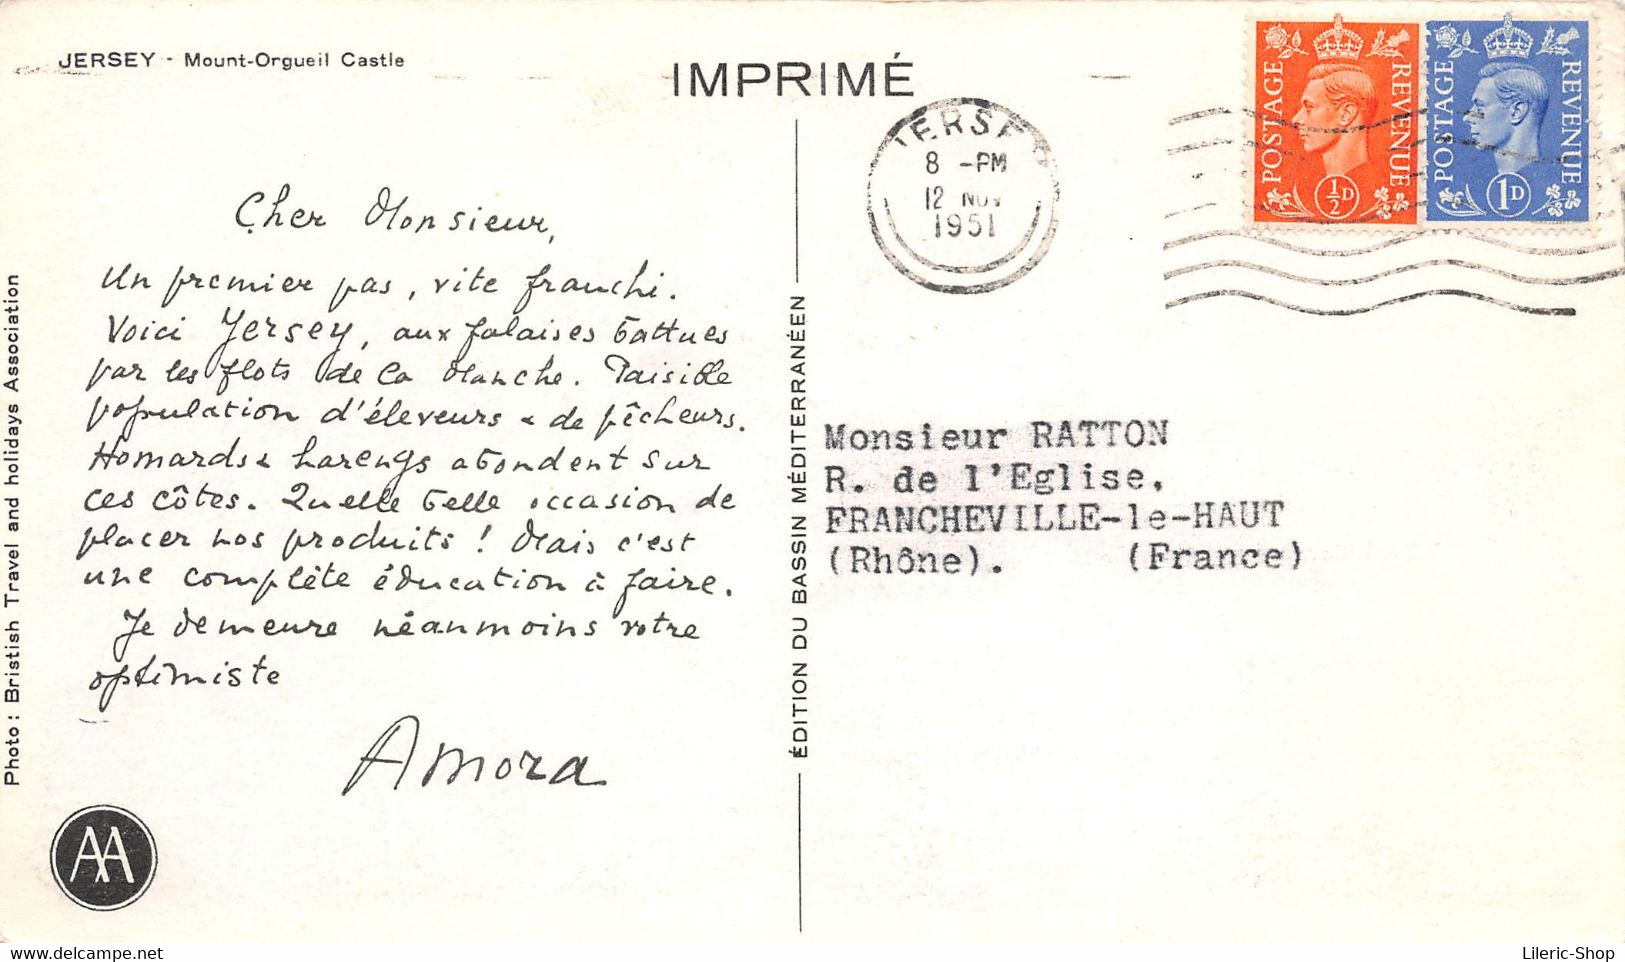 JERSEY - Mount-Orgueil Castle
IMPRIMÉ
JERSEY
8 - PM
12 NOV
1951
POSTAGE REVENUE
½D
POSTAGE REVENUE
1D
Cher Monsieur,
Un premier pas, vite franchi.
Voici Jersey, aux falaises battues
par les flots de la Manche. Paisible
population d'éleveurs & de pêcheurs.
Homards & harengs abondent sur
ces côtes. Quelle belle occasion de
placer nos produits ! Mais c'est
une complète éducation à faire.
Je demeure néanmoins votre
optimiste
Amora
AA
Photo : Bristish Travel and holidays Association
ÉDITION DU BASSIN MÉDITERRANÉEN
Monsieur RATTON
R. de l'Eglise,
FRANCHEVILLE-le-HAUT
(Rhône). (France)
Lileric-Shop